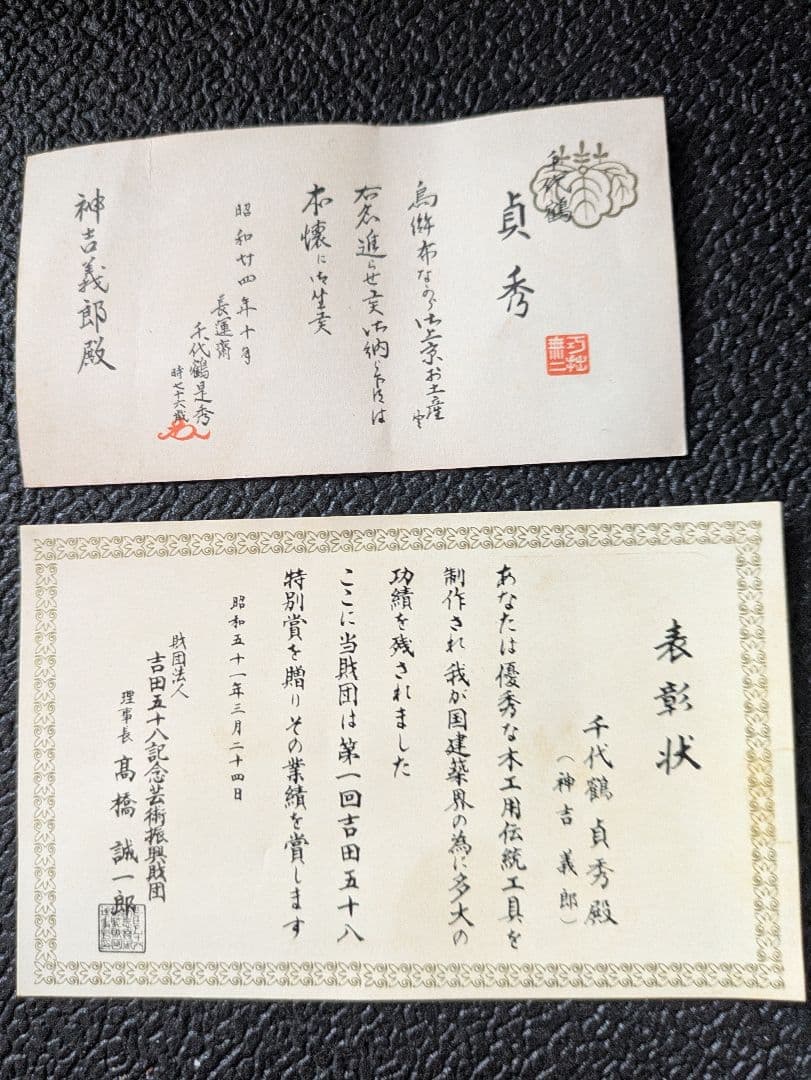 千代鶴
貞秀
烏帽布ながら御上京お土産
右名進らせ候御納め下さらば
本懐に御座候
昭和廿四年十月
長運齋
千代鶴是秀
時七十六歳
神吉義郎殿
表彰状
千代鶴 貞秀殿
（神吉 義郎）
あなたは優秀な木工用伝統工具を
制作され我が国建築界の為に多大の
功績を残されました
ここに当財団は第一回吉田五十八
特別賞を贈りその業績を賞します
昭和五十一年三月二十四日
財団法人
吉田五十八記念芸術振興財団
理事長 髙橋 誠一郎